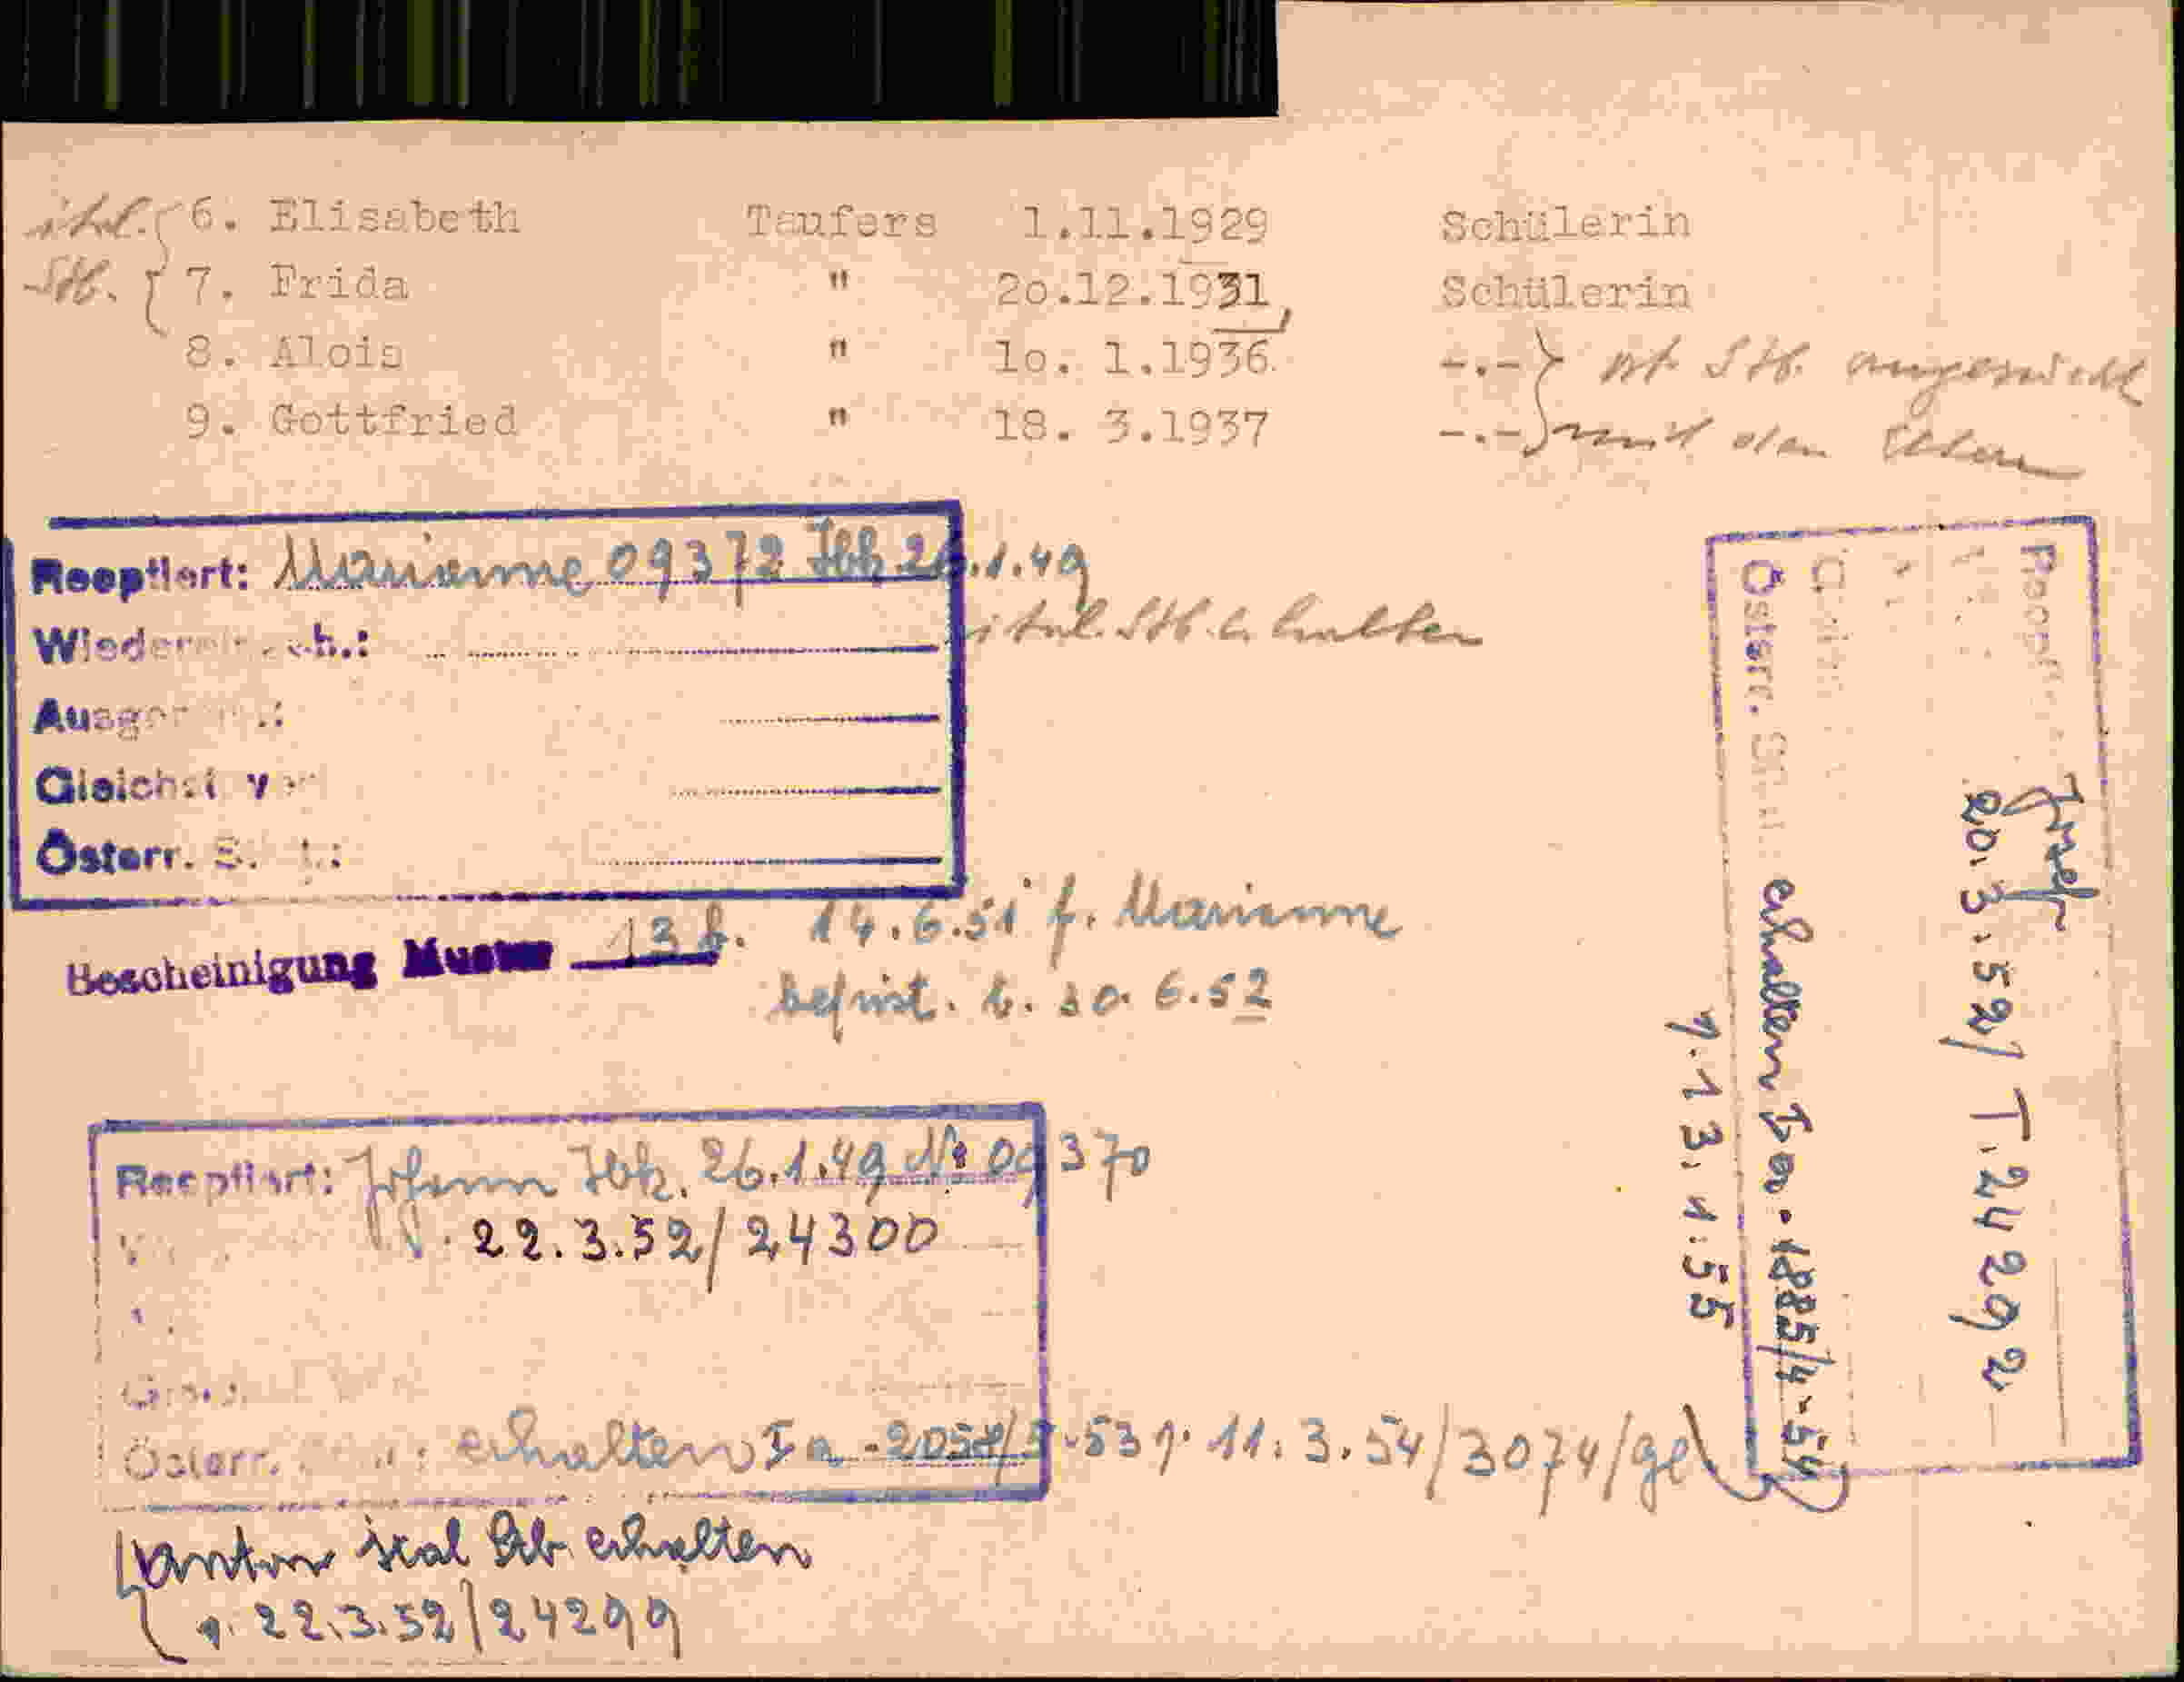 ital. { 6. Elisabeth Taufers 1.11.1929 Schülerin
Stb. { 7. Frida " 2o.12.1931, Schülerin
8. Alois " 1o. 1.1936. -.-} Stb.
9. Gottfried " 18. 3.1937 -.-} mit den Eltern
Reoptiert: Marianne 09372 Ibk. 26.1.49
ital. Stb. erhalten
Österr.
Bescheinigung Muster 13 f. 14.6.51 f. Marianne
befrist. b. 30.6.52
Reoptiert: Johann Ibk. 26.1.49 № 09370
22.3.52/24300
Österr. erhalten Ia-2058/3-53 v. 11.3.54/3074/
Anton ital Stb. erhalten
v. 22.3.52/24299
Josef
20.3.52/ T. 24292
Österr. erhalten Ia-1885/4-54
v. 13.1.55